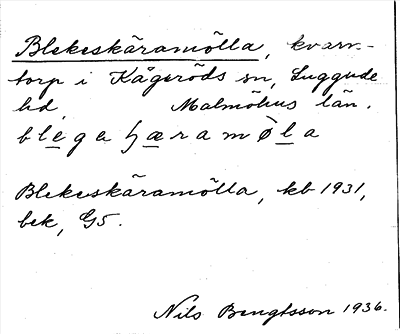 Blekeskäramölla, kvarn-
torp i Kågeröds sn, Luggude
hd, Malmöhus län.
blege ꜧæramøla
Blekeskäramölla, kb 1931,
bek, G5.
Nils Bengtsson 1936.